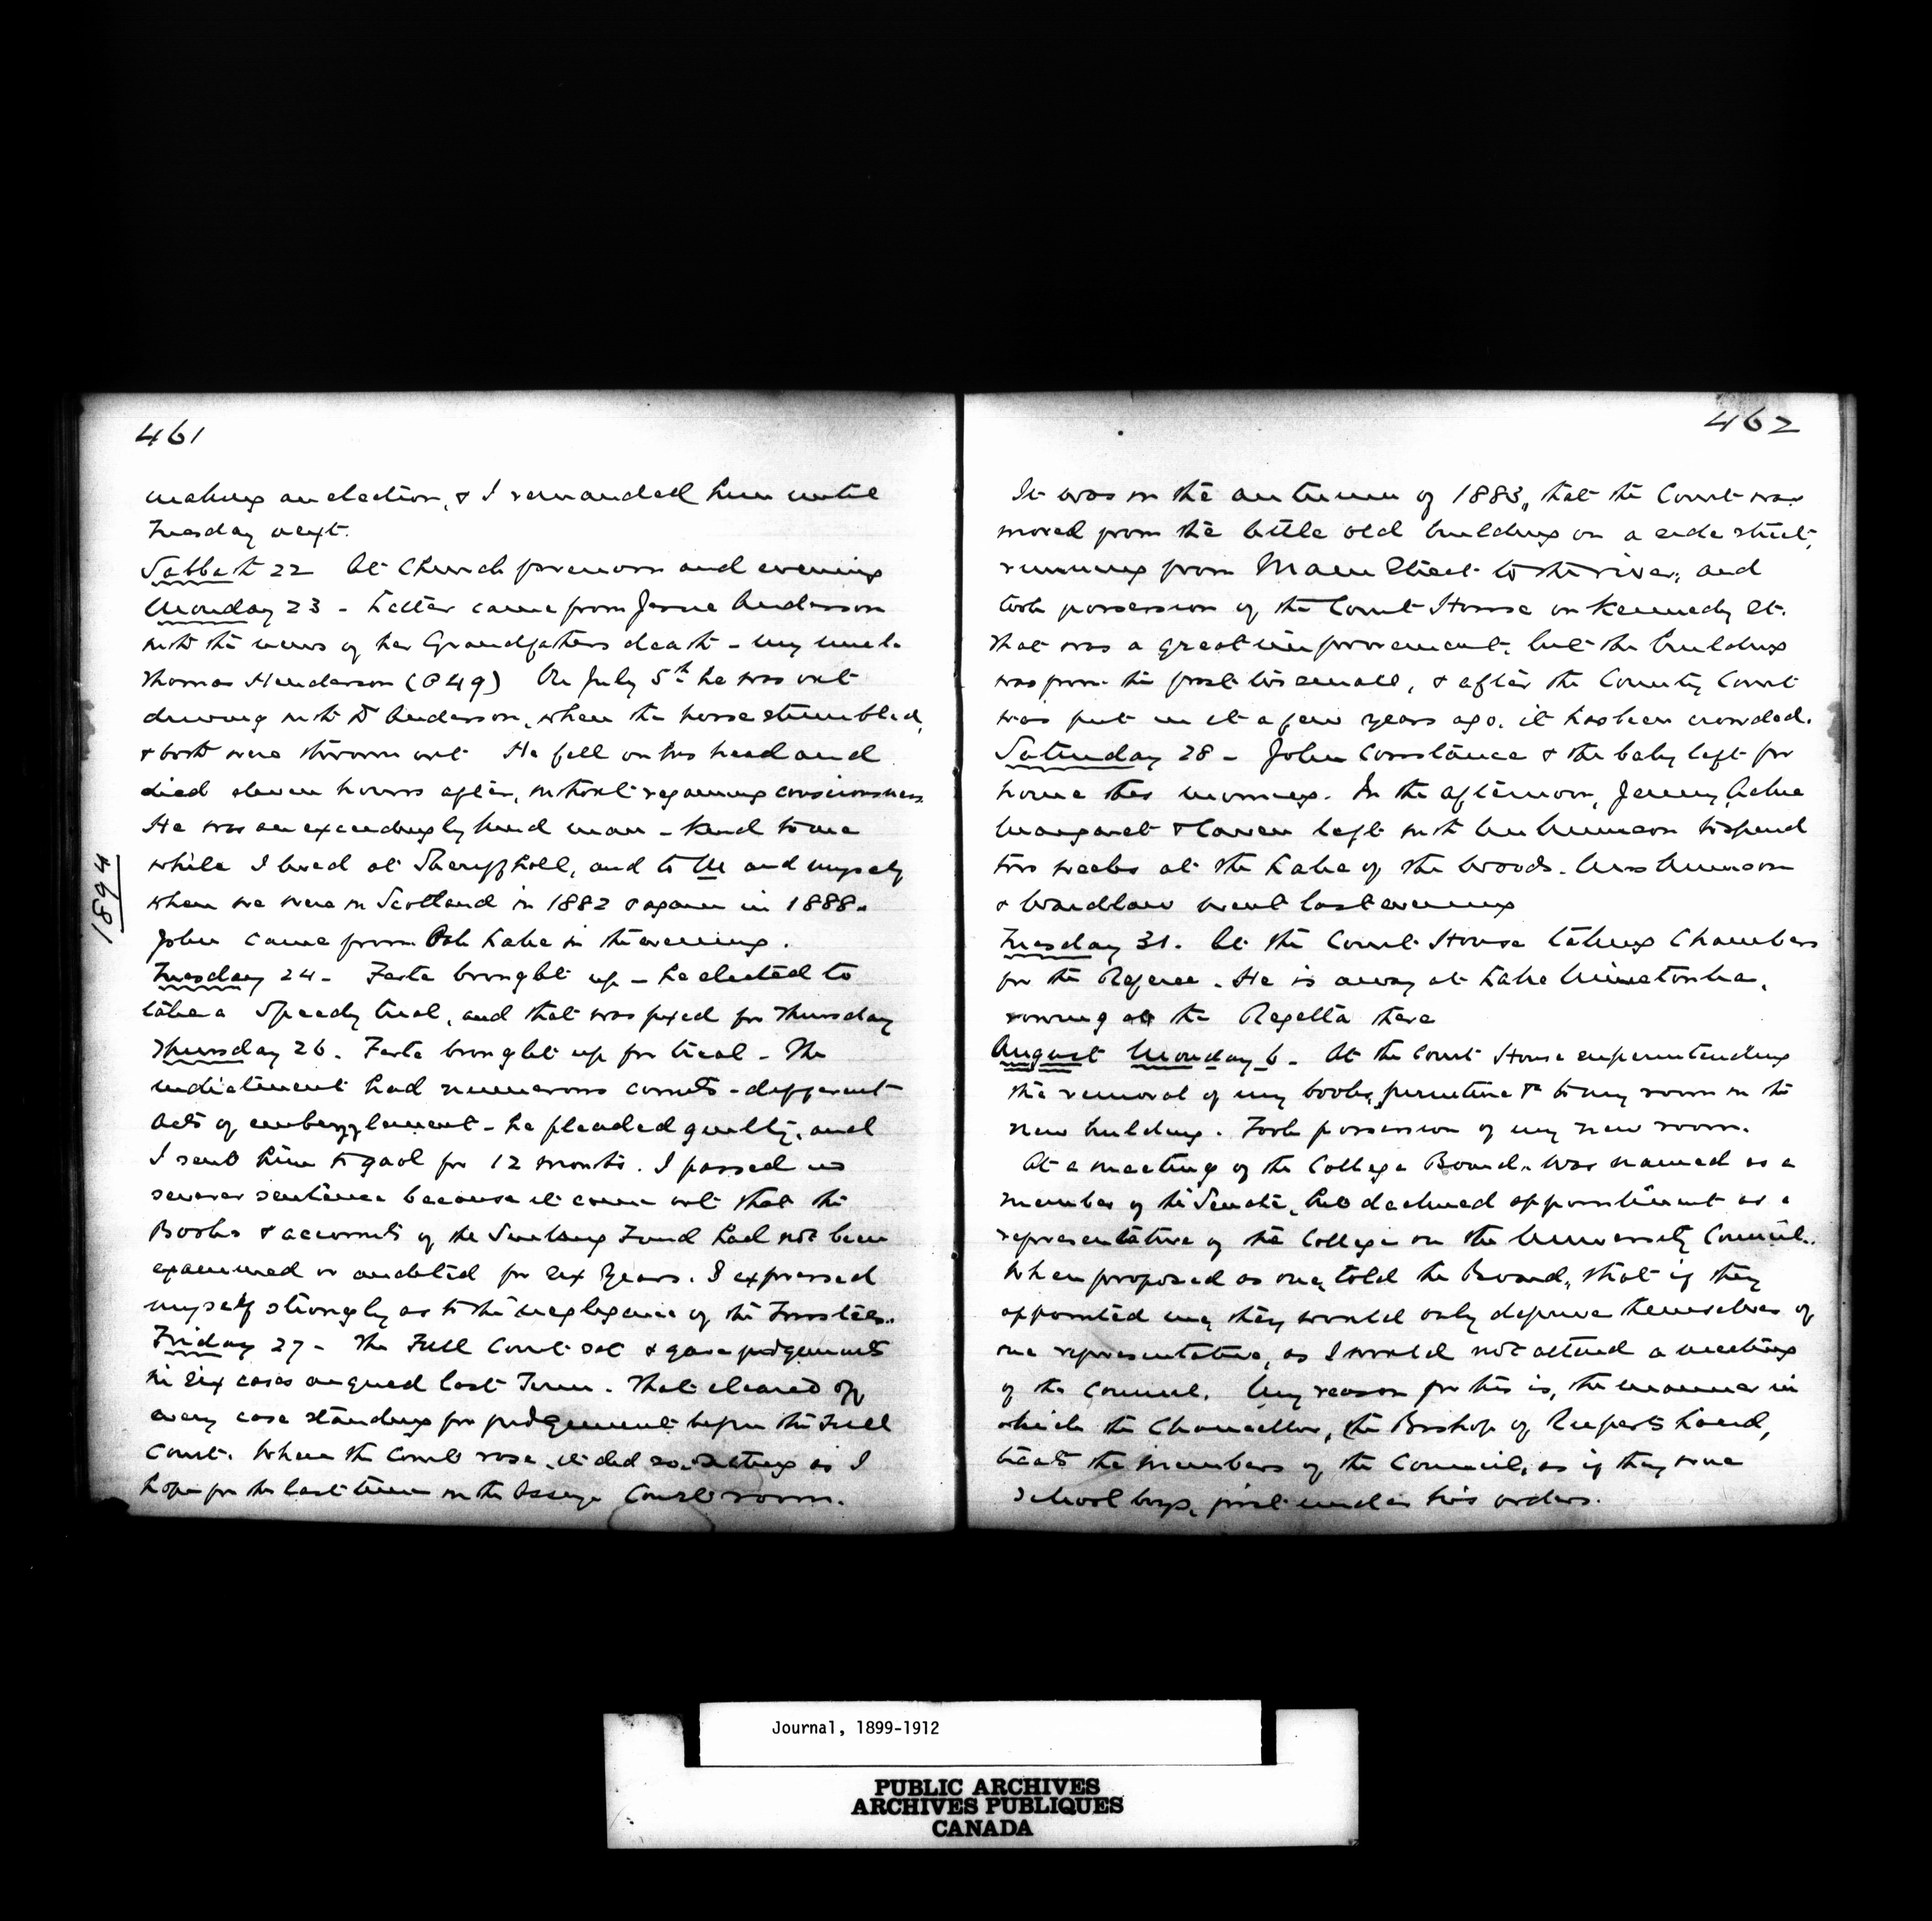 461
making an election, & I remanded him until
Tuesday next.
Sabbath 22 At Church forenoon and evening
Monday 23 - Letter came from Jessie Anderson
with the news of her Grandfathers death - my uncle
Thomas Henderson (P 49) On July 5th he was out
driving with Dr Anderson, when the horse stumbled,
& both were thrown out He fell on his head and
died eleven hours after, without regaining consciousness.
He was an exceedingly kind man - kind to me
while I lived at Sheriffhall, and to M and myself
1894
when we were in Scotland in 1882 & again in 1888.
John came from Oak Lake in the evening.
Tuesday 24 - brought up - he elected to
take a Speedy trial, and that was fixed for Thursday
Thursday 26. brought up for trial - The
indictment had numerous counts - different
acts of embezzlement - he pleaded guilty, and
I sent him to gaol for 12 months. I passed no
severer sentence because it came out that the
Books & accounts of the Sinking Fund had not been
examined or audited for six years. I expressed
myself strongly as to the negligence of the Trustees.
Friday 27 - The Full Court sat & gave judgements
in six cases argued last Term. That cleared off
every case standing for judgement before the Full
Court. When the Court rose, it did so, sitting as I
hope for the last time in the Assize Court room.
462
It was in the autumn of 1883, that the Court was
moved from the little old building on a side street,
running from Main Street to the river, and
took possession of the Court House on Kennedy St.
That was a great improvement, but the building
was from the first too small, & after the County Court
was put in it a few years ago, it has been crowded.
Saturday 28 - John Constance & the baby left for
home this morning. In the afternoon, Jenny,
Margaret & left with Mr Munson to spend
two weeks at the Lake of the Woods. Mrs Munson
& Wardlaw went last evening
Tuesday 31. At the Court House taking Chambers
for the Referee. He is away at Lake Minetonka,
rowing at the Regatta there
August Monday 6 - At the Court House superintending
the removal of my books, furniture &c to my room in the
new building. Took possession of my new room.
At a meeting of the College Board. Was named as a
member of the Senate, but declined appointment as a
representative of the College on the University Council.
When proposed as one, told the Board, that if they
appointed me, they would only deprive themselves of
one representative, as I would not attend a meeting
of the Council. My reason for this is, the manner in
which the Chancellor, the Bishop of Ruperts Land,
treats the members of the Council, as if they were
school boys, just under his orders.
Journal, 1899-1912
PUBLIC ARCHIVES
ARCHIVES PUBLIQUES
CANADA